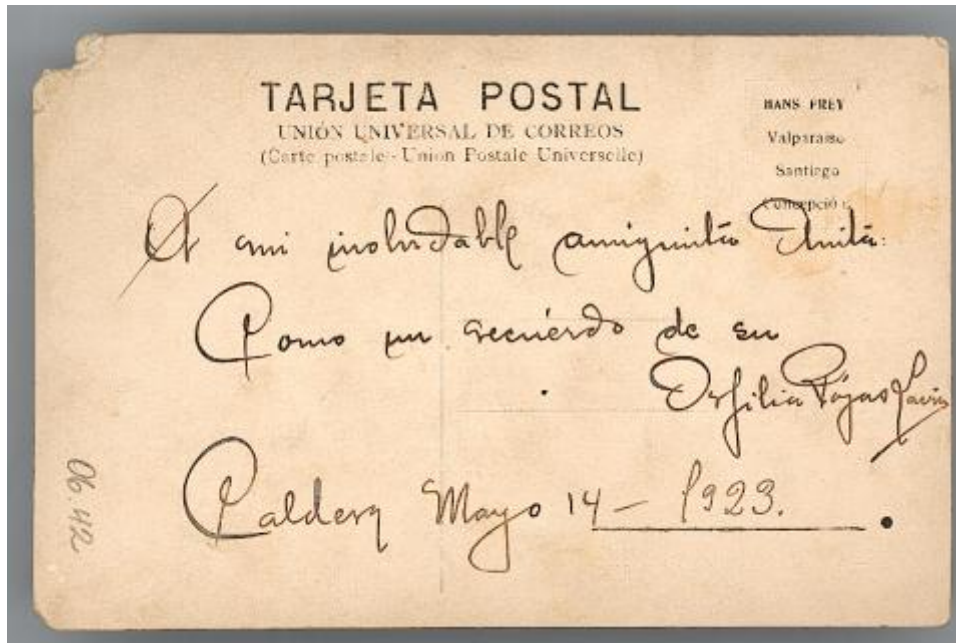 TARJETA POSTAL
UNIÓN UNIVERSAL DE CORREOS
(Carte postale - Union Postale Universelle)
HANS FREY
Valparaiso
Santiago
Concepción
A mi inolvidable amiguita Anita:
Como un recuerdo de su
Rojas
Caldera Mayo 14 - 1923.
06.412